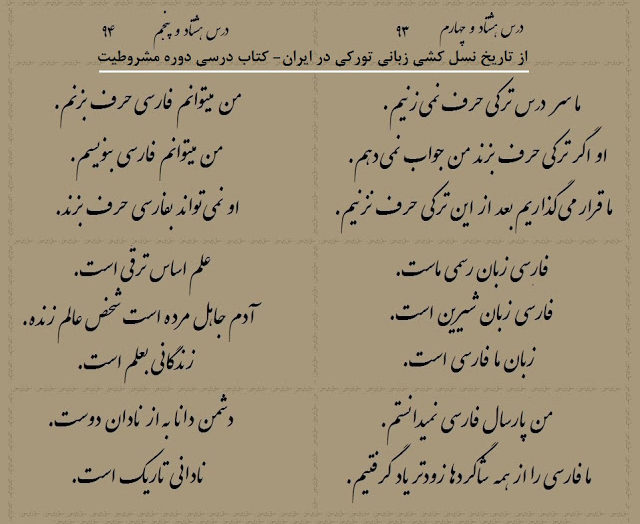 درس هشتاد و چهارم ۹۳
درس هشتاد و پنجم ۹۴
از تاریخ نسل کشی زبانی تورکی در ایران- کتاب درسی دوره مشروطیت
ما سر درس ترکی حرف نمی‌زنیم.
او اگر ترکی حرف بزند من جواب نمی‌دهم.
ما قرار می‌گذاریم بعد از این ترکی حرف نزنیم.
فارسی زبان رسمی ماست.
فارسی زبان شیرین است.
زبان ما فارسی است.
من پارسال فارسی نمیدانستم.
ما فارسی را از همه شاگردها زودتر یاد گرفتیم.
من میتوانم فارسی حرف بزنم.
من میتوانم فارسی بنویسم.
او نمی‌تواند بفارسی حرف بزند.
علم اساس ترقی است.
آدم جاهل مرده است شخص عالم زنده.
زندگانی بعلم است.
دشمن دانا به از نادان دوست.
نادانی تاریک است.